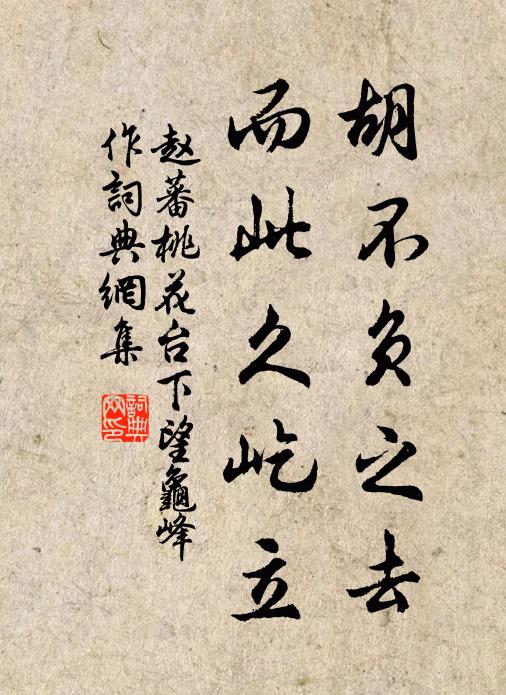 胡不负之去
而此久屹立
赵蕃桃花台下望龜峰
作詞典網集
詞典网印